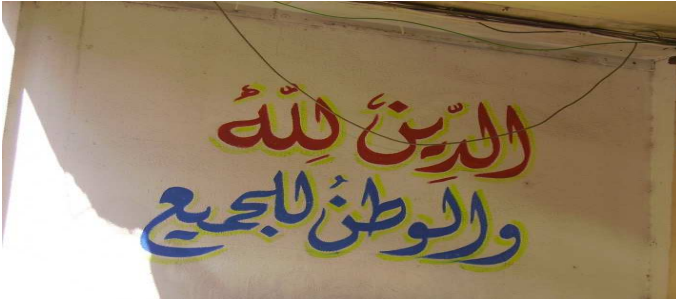 الدِّينُ لِلّهُ
والوطنُ للجميع